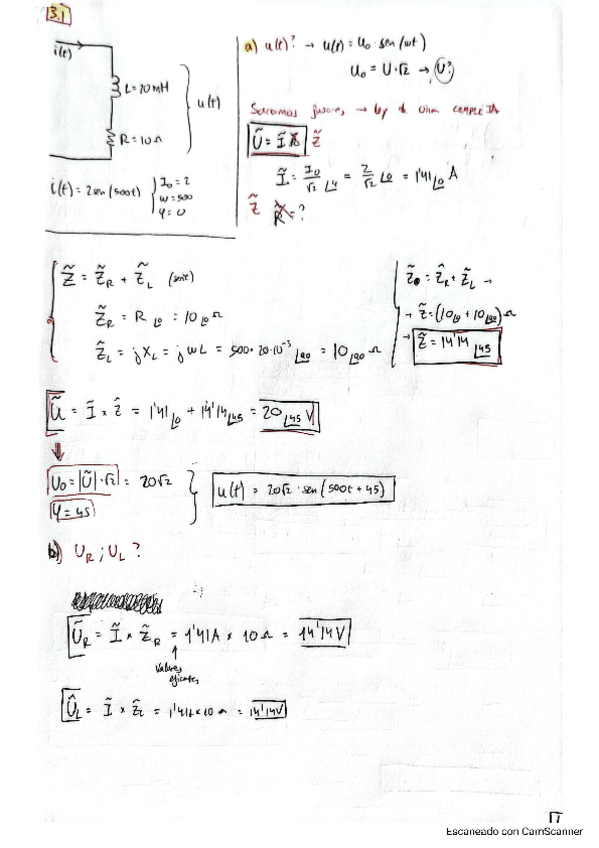 3.1
i(t)
L=20mH
R=10Ω
u(t)
i(t)= 2sen(500t)
I₀=2
w=500
φ=0
a) u(t)? → u(t)= U₀ · sen(wt)
U₀ = U·√2 → U?
→ ley d ohm
Ũ = Ĩ Z̃
Ĩ = I₀/√2 ∟φ = 2/√2 ∟0 = 1'41 ∟0 A
Z̃ = ?
Z̃ = Z̃R + Z̃L (serie)
Z̃R = R ∟0 = 10 ∟0 Ω
Z̃L = jXL = jwL = 500·20·10⁻³ ∟90 = 10 ∟90 Ω
Z̃ = Z̃R + Z̃L →
→ Z̃=(10∟0 + 10∟90)Ω
→ Z̃ = 14'14 ∟45
Ũ = Ĩ x Z̃ = 1'41 ∟0 + 14'14 ∟45 = 20 ∟45 V
U₀ = |Ũ|·√2 = 20√2
φ = 45
u(t) = 20√2 · sen(500t + 45)
b) UR ; UL ?
ŨR = Ĩ x Z̃R = 1'41A x 10 Ω = 14'14 V
Valores
eficaces
ŨL = Ĩ x Z̃L = 1'41A x 10 Ω = 14'14V
Escaneado con CamScanner